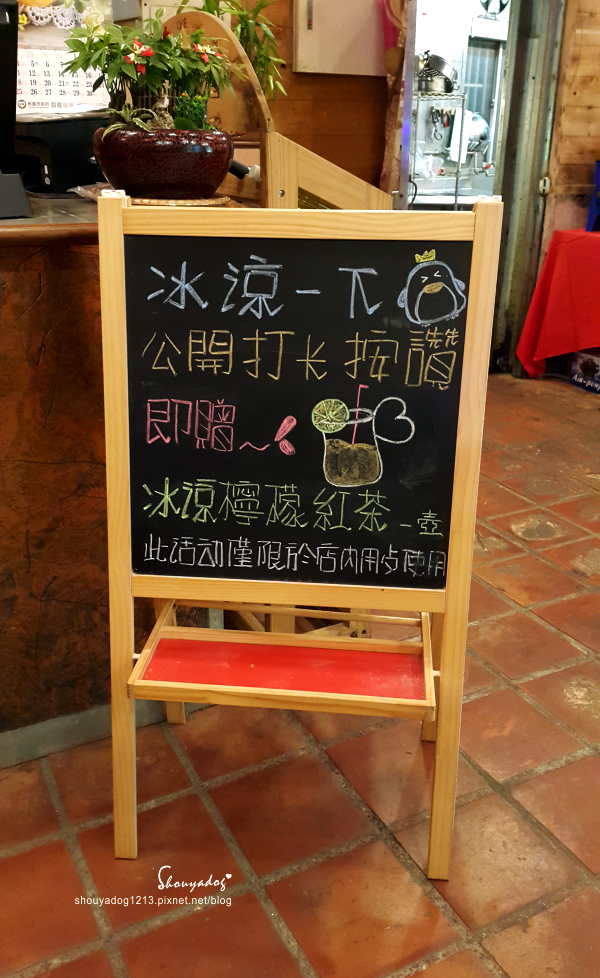 冰涼一下
公開打卡按讚
即贈~
冰涼檸檬紅茶一壺
此活动僅限於店内用步使用
Shouyadog
shouyadog1213.pixnet.net/blog